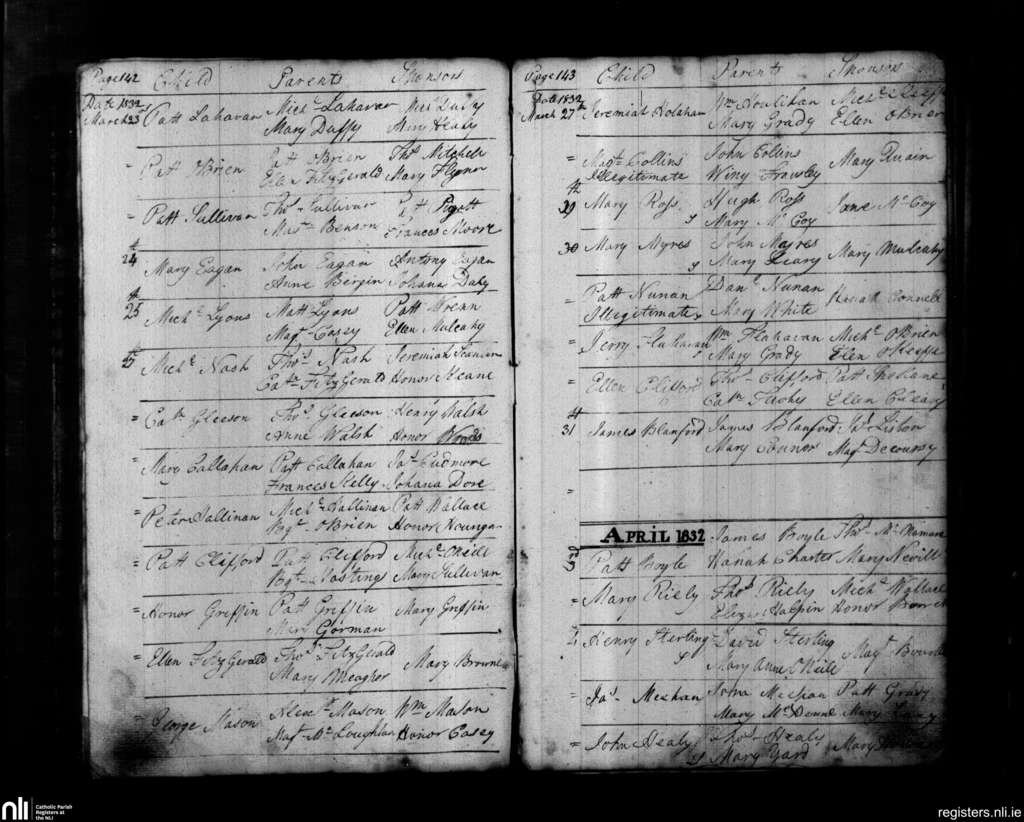 Page 142 Child Parents Sponsors
Date 1832 Mich.l Lahavan Mich.l Duffy
March 23 Patt Lahavan Mary Duffy Mary Healy
= Patt OBrien Patt OBrien Tho.s Mitchell
Ellen FitzGerald Mary Flynn
= Patt Sullivan Tho.s Sullivan Patt Pigott
Benson Frances Moore
24 Mary Eagan John Eagan Antony Eagan
Anne Bergin Johana Daly
25 Mich.l Lyons Matt Lyons Patt Wrenn
Mag.t Casey Ellen Mulcahy
25 Mich.l Nash Tho.s Nash Jeremiah
Cath.n FitzGerald Honor Keane
= Cath.n Gleeson Tho.s Gleeson Henry Walsh
Anne Walsh Honor Woods
= Mary Callahan Patt Callahan Ja.s Cudmore
Frances Kelly Johana Dore
= Peter Hallinan Mich.l Hallinan Patt Wallace
OBrien Honor
= Patt Clifford Patt Clifford Mich.l ONeill
Hastings Mary Sullivan
= Honor Griffin Patt Griffin Mary Griffin
Mary Gorman
= Ellen FitzGerald Tho.s FitzGerald Mary Browne
Mary Meagher
= George Mason Alex.r Mason W.m Mason
Mag.t McLoughlan Honor Casey
Page 143 Child Parents Sponsors
Date 1832 W.m Houlihan Mich.l
March 27th Jeremiah Holahan Mary Grady Ellen OBrien
= Mag.t Collins John Collins Mary Ruain
Illegitimate Winy Frawley
29 Mary Ross Hugh Ross Jane McCoy
Mary McCoy
30 Mary Myres John Mayres Mary Mulcahy
Mary Leary
= Patt Nunan Dan.l Nunan Connell
Illegitimate Mary White
= Jerry Flahavan W.m Flahavan Mich.l OBrien
Mary Grady Ellen OKeeffe
= Ellen Clifford Tho.s Clifford Patt
Cath.n Ellen
31 James Blanford James Blanford Liston
Mary Connor Mag.t Decourcy
=
APRIL 1832 James Boyle Tho.s McNamara
3rd Patt Boyle Hanah Charter Mary Nevill
= Mary Riely Tho.s Riely Mich.l Wallace
Eliza Halpin Honor
Henry Sterling David Sterling Mag.t
Mary Anne ONeill
= Ja.s Meehan John Meehan Patt Grady
Mary Mary
= John Healy Tho.s Healy Mary
Mary Ward
nli Catholic Parish
Registers at
the NLI
registers.nli.ie